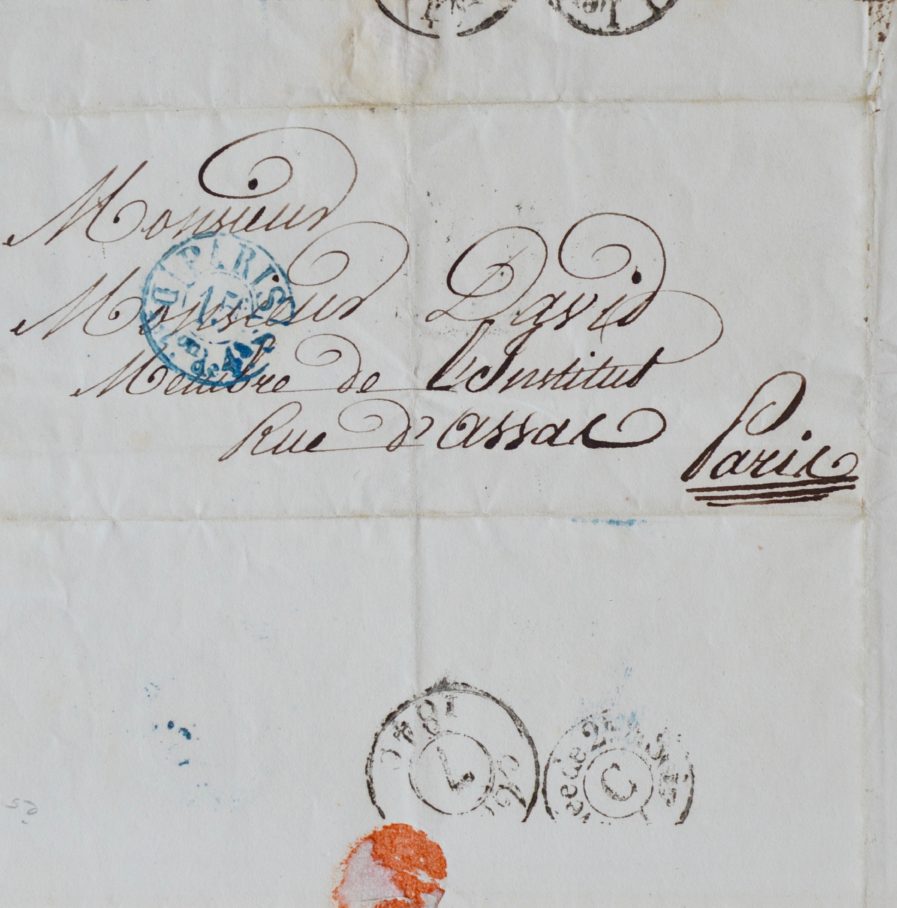 Monsieur
Monsieur David
Membre de L'Institut
Rue d'assas
Paris
PARIS
15
1840
L
C